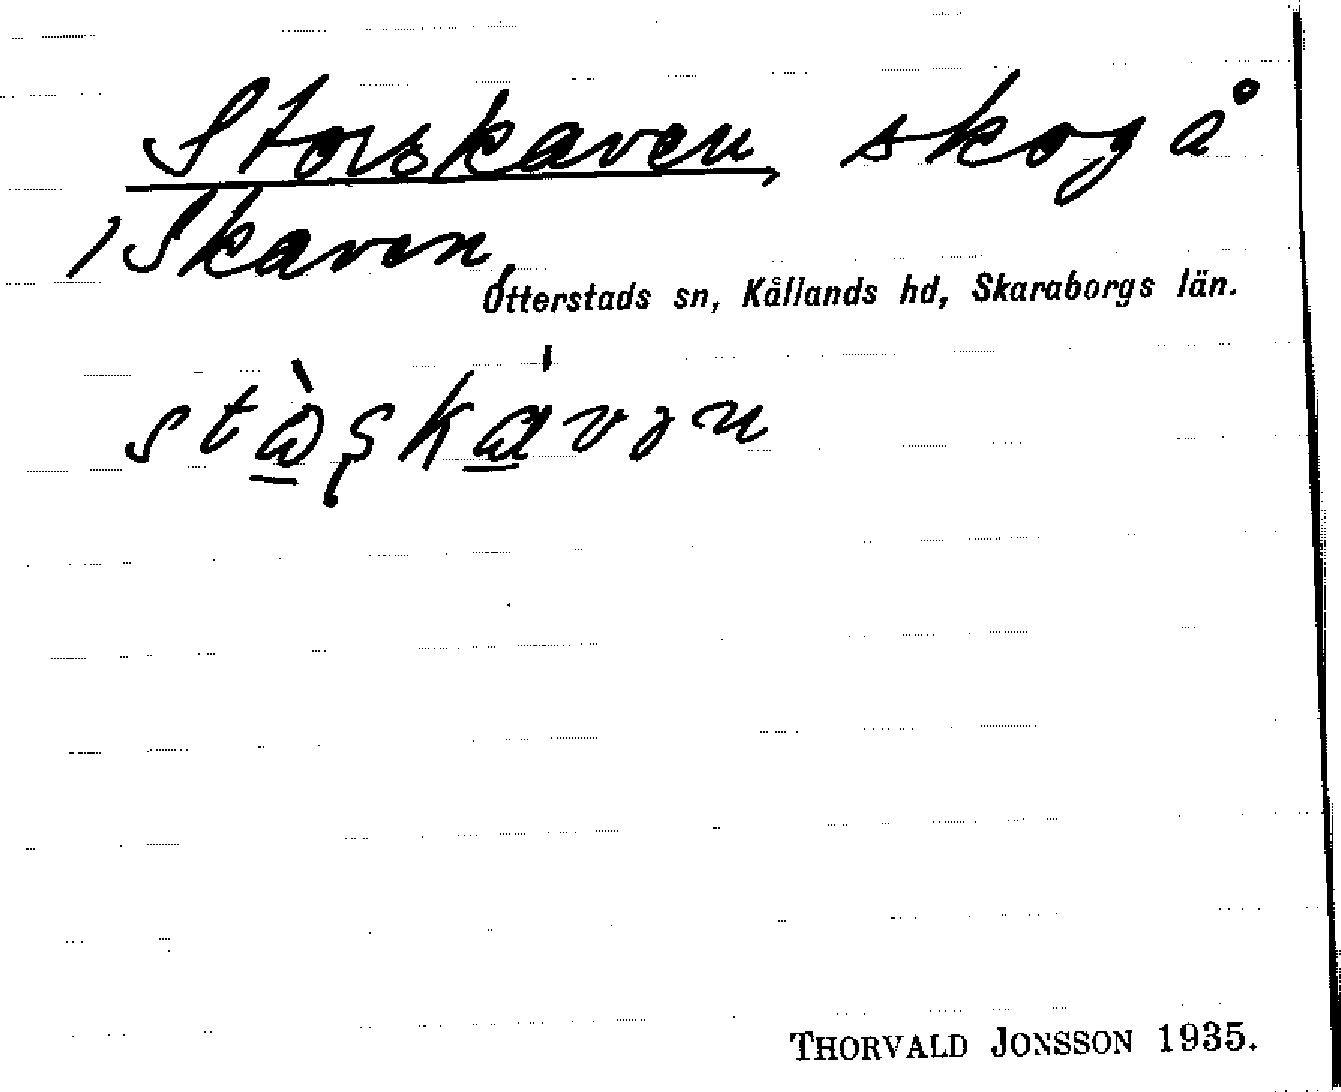 Storskaven, skog å
/Skaven,
Otterstads sn, Kållands hd, Skaraborgs län.
THORVALD JONSSON 1935.